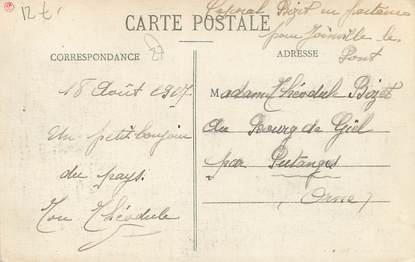 12 t'
Caporal Bizet en partance
pour Joinville le
Pont
CARTE POSTALE
CORRESPONDANCE
ADRESSE
18 Août 1907
Un petit bonjour
du pays.
Ton Théodule
Madame Théodule Bizet
au Bourg de Giel
par Putanges
(Orne)